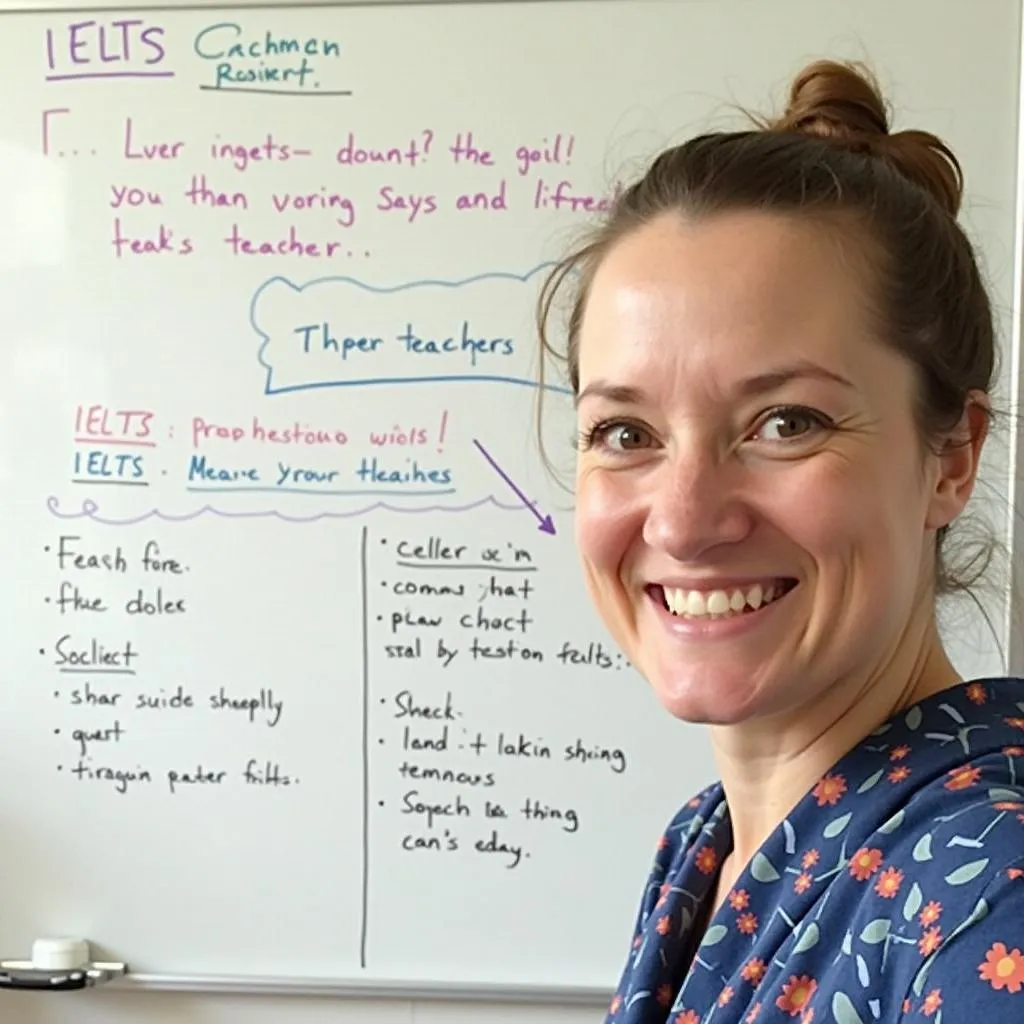 IELTS Cachman
Rosikert.
... Lver ingets- dount? the goil!
you than voring Says and lifree
teak's teacher..
Thper teachers
IELTS : prophestiouo wiols!
IELTS . Meare yrour tleaihes
· Feash fore.
· fhue dolex
· Socliect
· shar suide sheeplly
· quest
· tiraguin pater frilts.
· celler
· comms
· plaw choct
stal by testion fults:.
· Sheck.
· land it lakin shring
temnous
· Sopech thing
can's eday.